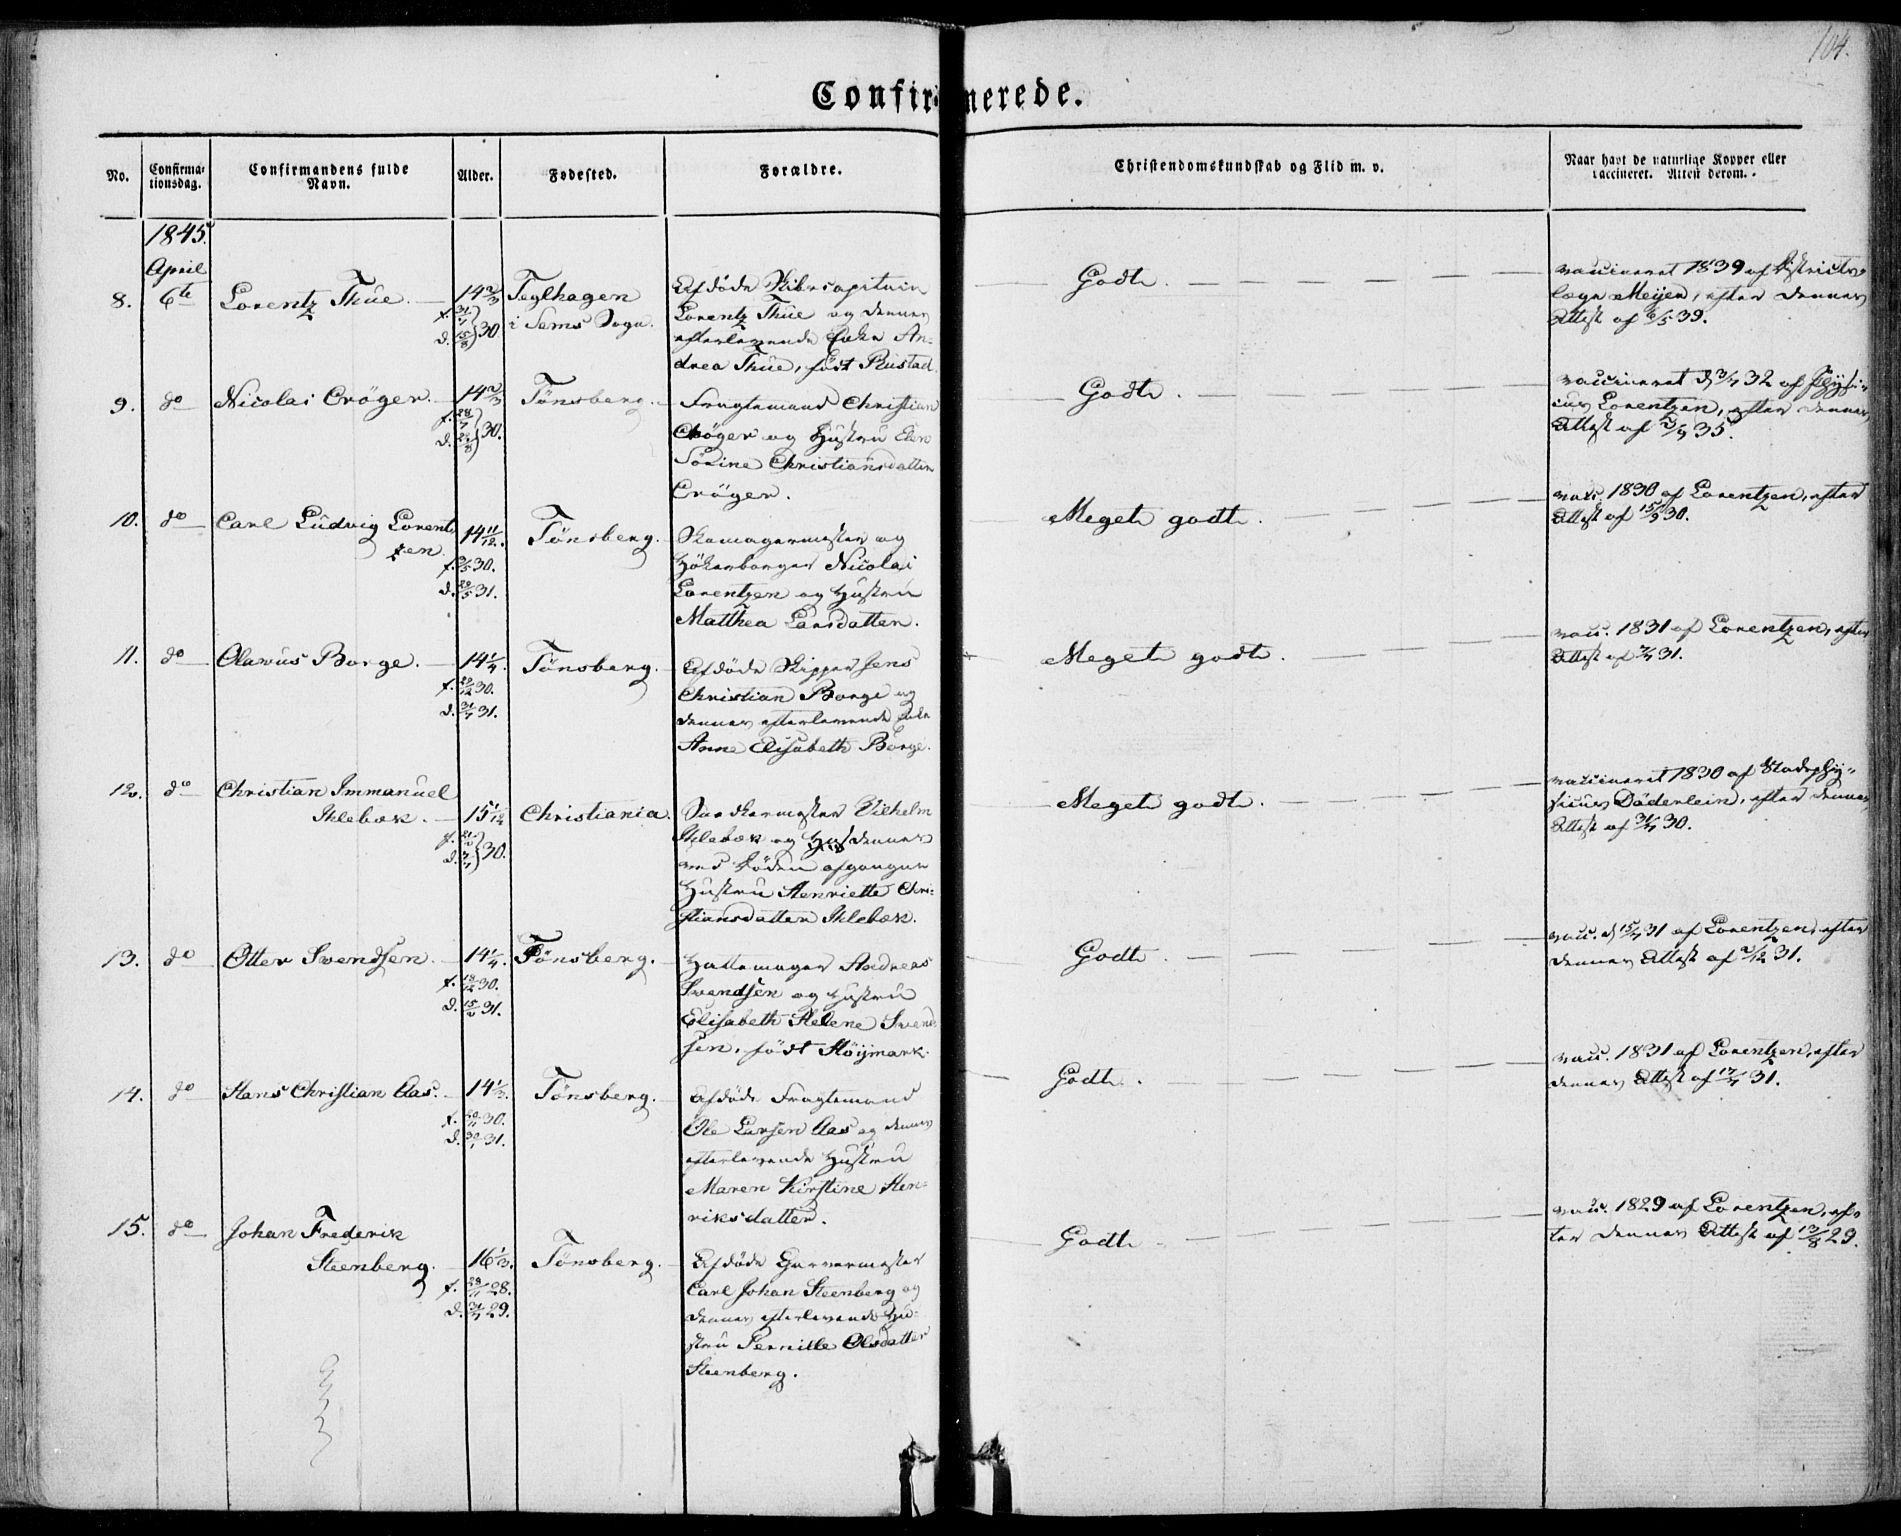 104.
Confirmerede.
No.
Confirma-
tionsdag.
Confirmandens fulde
Navn.
Alder.
Fødested.
Forældre.
Christendomskundskab og Flid m. v.
Naar havt de naturlige Kopper eller
vaccineret. Attest derom.
1845.
April
8. 6te Lorentz Thue. 14 2/3 Teglhagen
i Sems Sogn.
30
Afdöde Skibscapitain
Lorentz Thue og dennes
efterlevende Enke An-
drea Thue, födt Rustad
Godt.
vaccineret 1839 af Districts
læge Meijer, efter dennes
Attest af 6/5 39.
9. do Nicolai Cröger. 14 2/3 Tönsberg.
30.
Fragtemand Christian
Cröger og Hustru Elen
Sörine Christiansdatter
Cröger.
Godt.
vaccineret d 3/7 32 af Physi-
cus Lorentzen, efter dennes
Attest af 35.
10. do Carl Ludvig Lorent-
zen. 14 11/12. Tönsberg.
f. 30.
d. 31.
Skomagermester og
Hökerborger Nicolai
Lorentzen og Hustru
Matthea Larsdatter.
Meget godt.
vacc. 1830 af Lorentzen, efter
Attest af 15/9 30.
11. do Olavus Borge. 14 1/4. Tönsberg.
f. 30.
d. 31.
Afdöde Skipper Jens
Christian Borge og
dennes efterlevende Enke
Anne Elisabeth Borge.
Meget godt.
vacc. 1831 af Lorentzen, efter
Attest af 31.
12. do Christian Immanuel
Iklebæk. 15 1/12 Christiania.
30.
Snedkermester Vilhelm
Iklebæk og dennes
ved Döden afgangne
Hustru Henriette Chri-
stiansdatter Iklebæk.
Meget godt.
vaccineret 1830 af Stadsphy-
sicus Döderlein, efter dennes
Attest af 30.
13. do Otter Svendsen. 14 1/4. Tönsberg.
f. 18/12 30.
d. 15/2 31.
Hattemager Andreas
Svendsen og Hustru
Elisabeth Helene Svend-
sen, födt Höijmark.
Godt.
vacc. d 15/7 31 af Lorentzen, efter
dennes Attest af 2/12 31.
14. do Hans Christian Aas. 14 1/3. Tönsberg.
f. 30.
d. 31.
Afdöde Fragtemand
Ole Larsen Aas og dennes
efterlevende Hustru
Maren Kirstine Hen-
riksdatter.
Godt.
vacc. 1831 af Lorentzen, efter
dennes Attest af 31.
15. do Johan Frederik
Steenberg. 16 1/3. Tönsberg.
f. 28.
d. 29.
Afdöde Garvermester
Carl Johan Steenberg og
dennes efterlevende Hu-
stru Pernille Olsdatter
Steenberg.
Godt.
vacc. 1829 af Lorentzen, ef-
ter dennes Attest af 13/8 29.